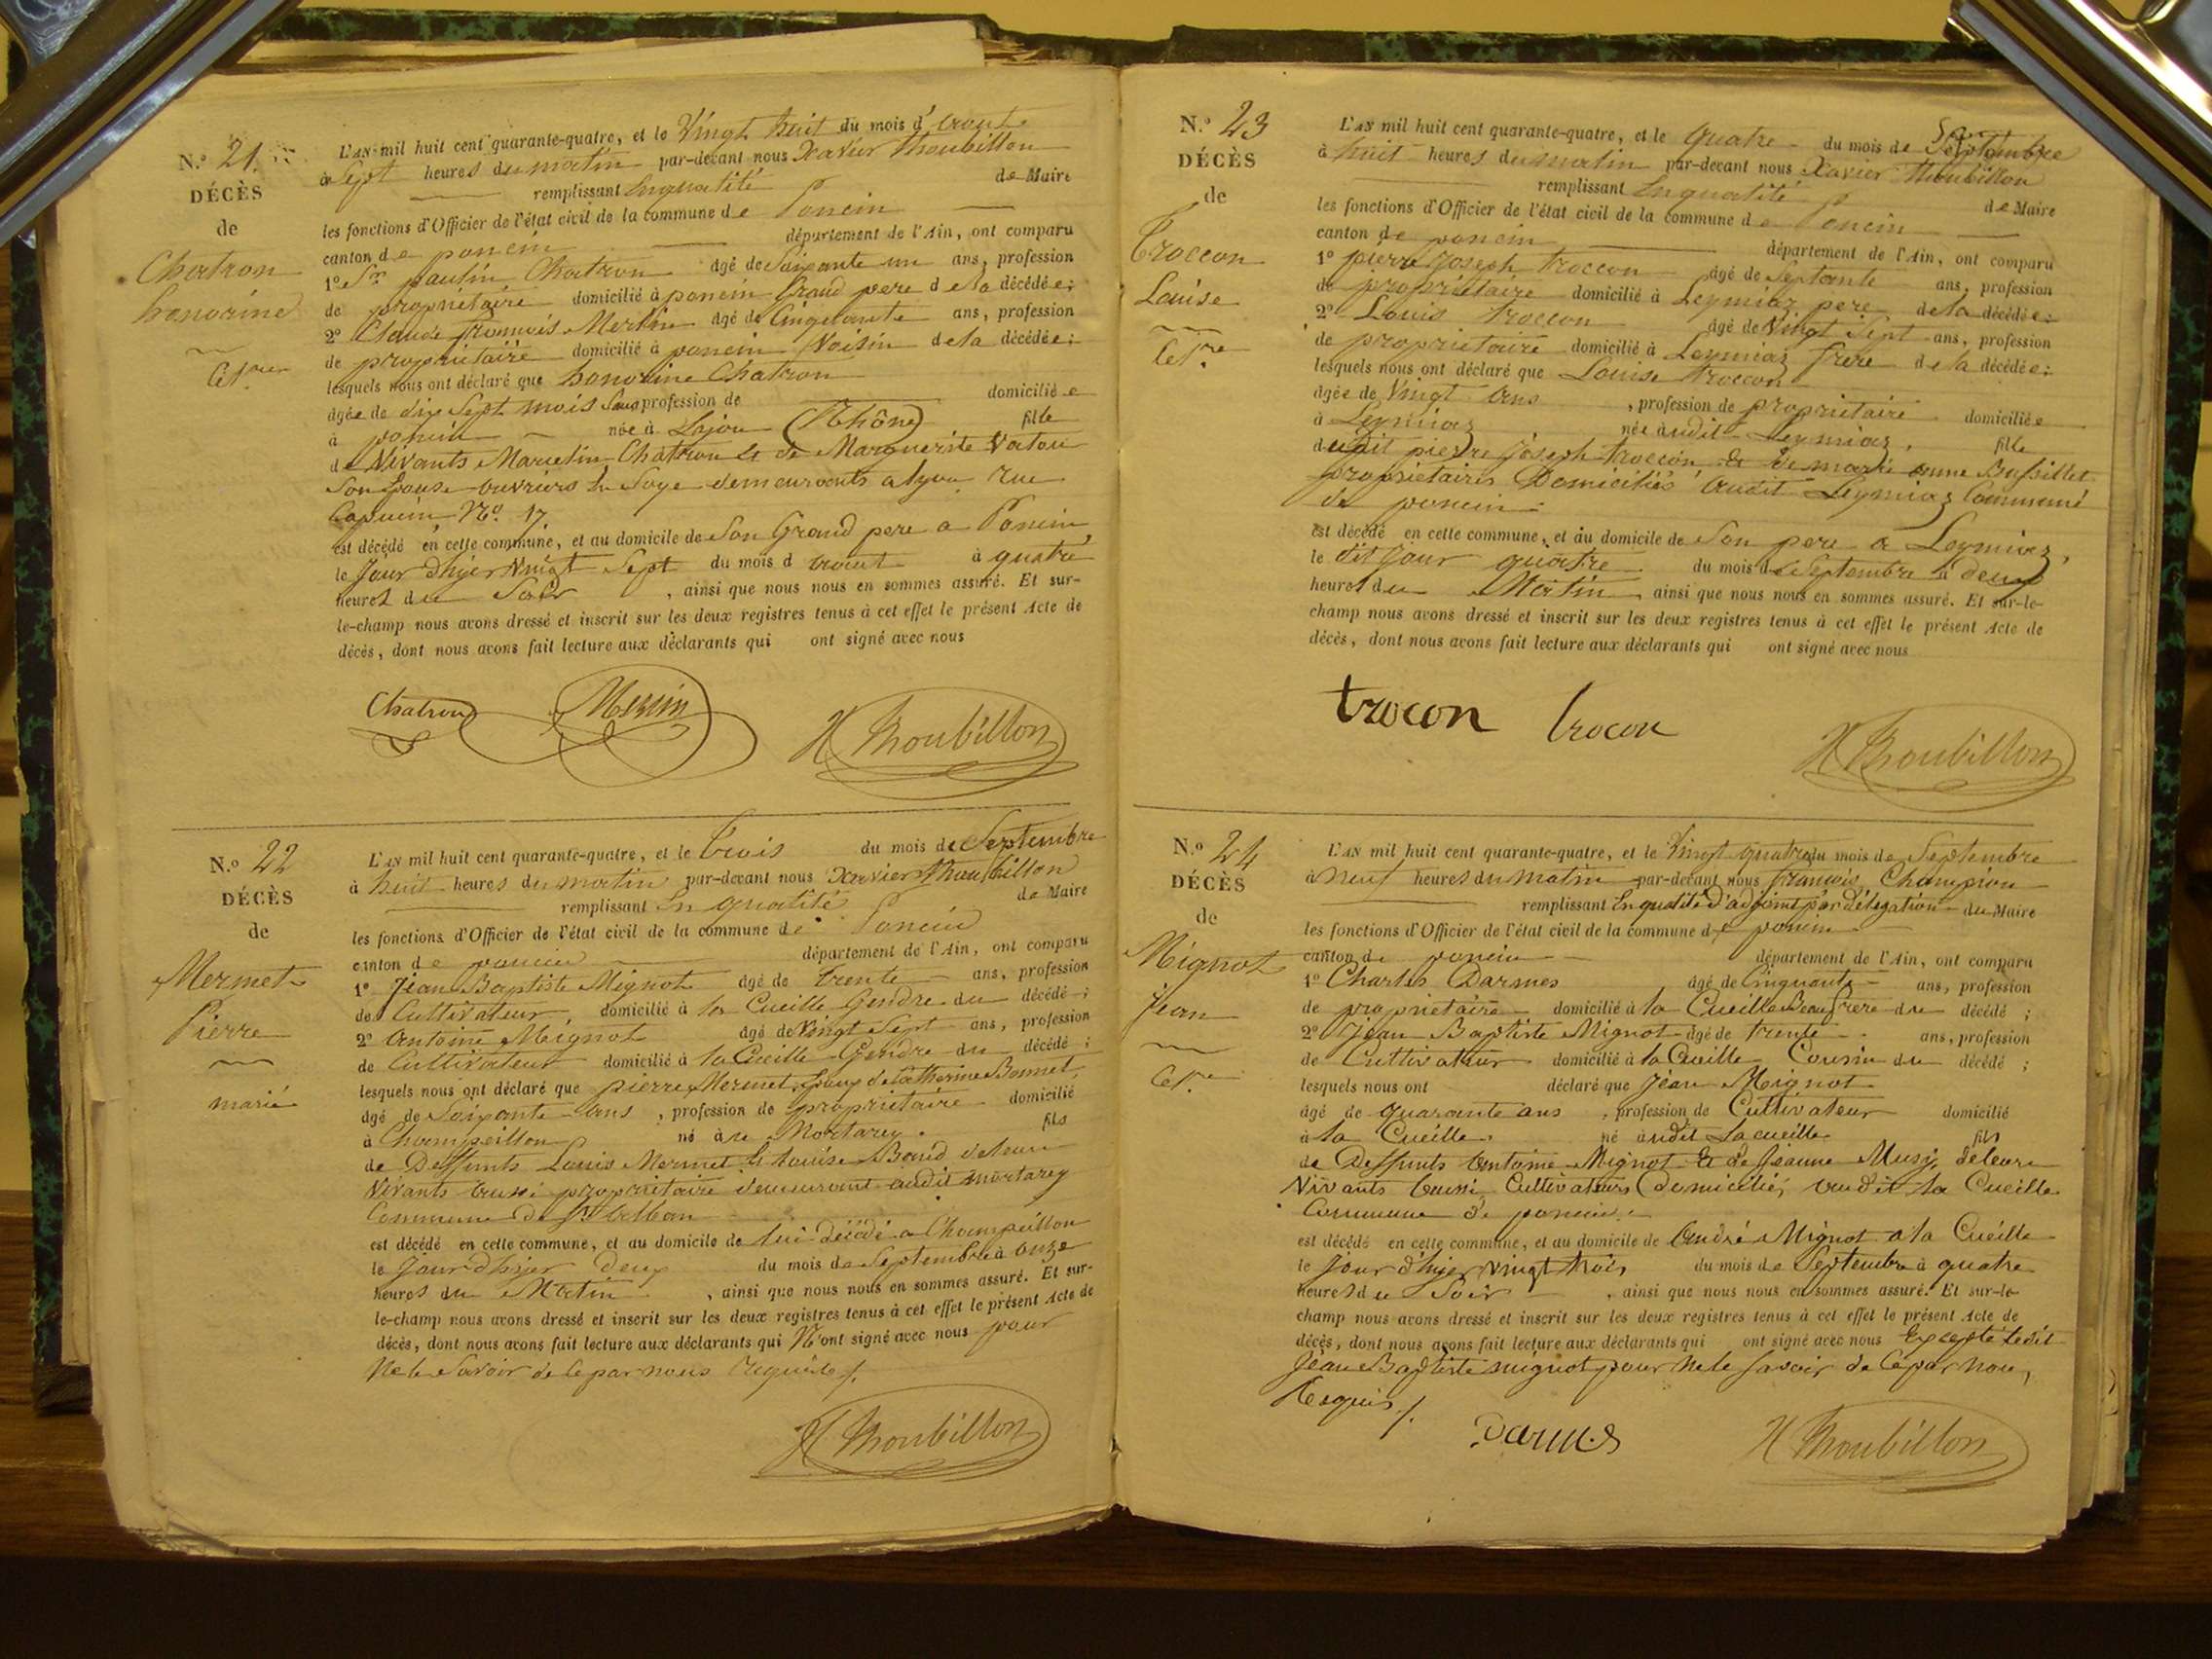 N.° 21.
DÉCÈS
de
Chatron
honorine
Cel.re
L'AN mil huit cent quarante-quatre, et le Vingt huit du mois d'Aout
à Sept heures du matin par-devant nous Xavier Thoubillon
remplissant En qualité de Maire
les fonctions d'Officier de l'état civil de la commune de Poncin
canton de poncin département de l'Ain, ont comparu
1° Sr. paulin Chatron âgé de Soixante un ans, profession
de propriétaire domicilié à poncin Grand pere de la décédée;
2° Claude françois Merlin âgé de Cinquante ans, profession
de propriétaire domicilié à poncin Voisin de la décédée;
lesquels nous ont déclaré que honorine Chatron
âgée de dix Sept mois Sans profession de domiciliée
à poncin née à Lajou (Rhône) fille
de Vivants Marcelin Chatron et de Marguerite Vatou
Son Epouse ouvriers en Soye demeurants a lyon rue
Capucin No. 17
est décédé en cette commune, et au domicile de Son Grand pere a Poncin
le Jour d'hyer Vingt Sept du mois d aout à quatre
heures du Soir , ainsi que nous nous en sommes assuré. Et sur-
le-champ nous avons dressé et inscrit sur les deux registres tenus à cet effet le présent Acte de
décès, dont nous avons fait lecture aux déclarants qui ont signé avec nous
Chatron Merlin X Thoubillon
N.° 22
DÉCÈS
de
Mermet
Pierre
marié
L'AN mil huit cent quarante-quatre, et le trois du mois de Septembre
à huit heures du matin par-devant nous Xavier Thoubillon
remplissant En qualité de Maire
les fonctions d'Officier de l'état civil de la commune de Poncin
canton de poncin département de l'Ain, ont comparu
1° Jean Baptiste Mignot âgé de trente ans, profession
de Cultivateur domicilié à la Cueille Gendre du décédé;
2° Antoine Mignot âgé de Vingt Sept ans, profession
de Cultivateur domicilié à la Cueille Gendre du décédé;
lesquels nous ont déclaré que pierre Mermet Epoux de Catherine Bonnet
âgé de Soixante ans , profession de propriétaire domicilié
à Champeillon né à re Mortarey fils
de Deffunts Louis Mermet et Louise Bond de leur
Vivants aussi propriétaire demeurant audit mortarey
Commune de St Alban
est décédé en cette commune, et au domicile de lui décédé a Champeillon
le Jour d'hyer deux du mois de Septembre à onze
heures du Matin , ainsi que nous nous en sommes assuré. Et sur-
le-champ nous avons dressé et inscrit sur les deux registres tenus à cet effet le présent Acte de
décès, dont nous avons fait lecture aux déclarants qui N'ont signé avec nous pour
Ne le Savoir de ce par nous requis /.
X Thoubillon
N.° 23
DÉCÈS
de
Troccon
Louise
Cel.re
L'AN mil huit cent quarante-quatre, et le quatre du mois de Septembre
à huit heures du matin par-devant nous Xavier Thoubillon
remplissant En qualité de Maire
les fonctions d'Officier de l'état civil de la commune de Poncin
canton de poncin département de l'Ain, ont comparu
1° pierre Joseph troccon âgé de Septante ans, profession
de propriétaire domicilié à Leymiaz pere de la décédée;
2° Louis troccon âgé de Vingt Sept ans, profession
de propriétaire domicilié à Leymiaz frere de la décédée;
lesquels nous ont déclaré que Louise troccon
âgée de Vingt ans , profession de propriétaire domiciliée
à Leymiaz née audit Leymiaz, fille
dudit pierre Joseph troccon & de marie anne Bussillet
propriétaires Domiciliés audit Leymiaz Commune
de poncin
est décédé en cette commune, et au domicile de Son pere a Leymiaz,
le dit Jour quatre du mois de Septembre à deux
heures du Matin ainsi que nous nous en sommes assuré. Et sur-le-
champ nous avons dressé et inscrit sur les deux registres tenus à cet effet le présent Acte de
décès, dont nous avons fait lecture aux déclarants qui ont signé avec nous
trocon trocon X Thoubillon
N.° 24
DÉCÈS
de
Mignot
Jean
Cel.re
L'AN mil huit cent quarante-quatre, et le Vingt quatre du mois de Septembre
à neuf heures du matin par-devant nous françois Champion
remplissant En qualité d'adjoint par délégation du Maire
les fonctions d'Officier de l'état civil de la commune de poncin
canton de poncin département de l'Ain, ont comparu
1° Charles Darmes âgé de Cinquante ans, profession
de propriétaire domicilié à la Cueille Beau frere du décédé;
2° Jean Baptiste Mignot âgé de trente ans, profession
de Cultivateur domicilié à la Cueille Cousin du décédé;
lesquels nous ont déclaré que Jean Mignot
âgé de quarante ans , profession de Cultivateur domicilié
à la Cueille né audit Lacueille fils
de Deffunts Antoine Mignot & de Jeanne Musy, de leurs
Vivants aussi Cultivateurs Domiciliés audit la Cueille
Commune de poncin.
est décédé en cette commune, et au domicile de André Mignot a la Cueille
le Jour d'hyer vingt trois du mois de Septembre à quatre
heures du Soir , ainsi que nous nous en sommes assuré. Et sur-le-
champ nous avons dressé et inscrit sur les deux registres tenus à cet effet le présent Acte de
décès, dont nous avons fait lecture aux déclarants qui ont signé avec nous Excepté ledit
Jean Baptiste mignot pour ne le Savoir de Ce par nous,
Requis /.
Darmes X Thoubillon